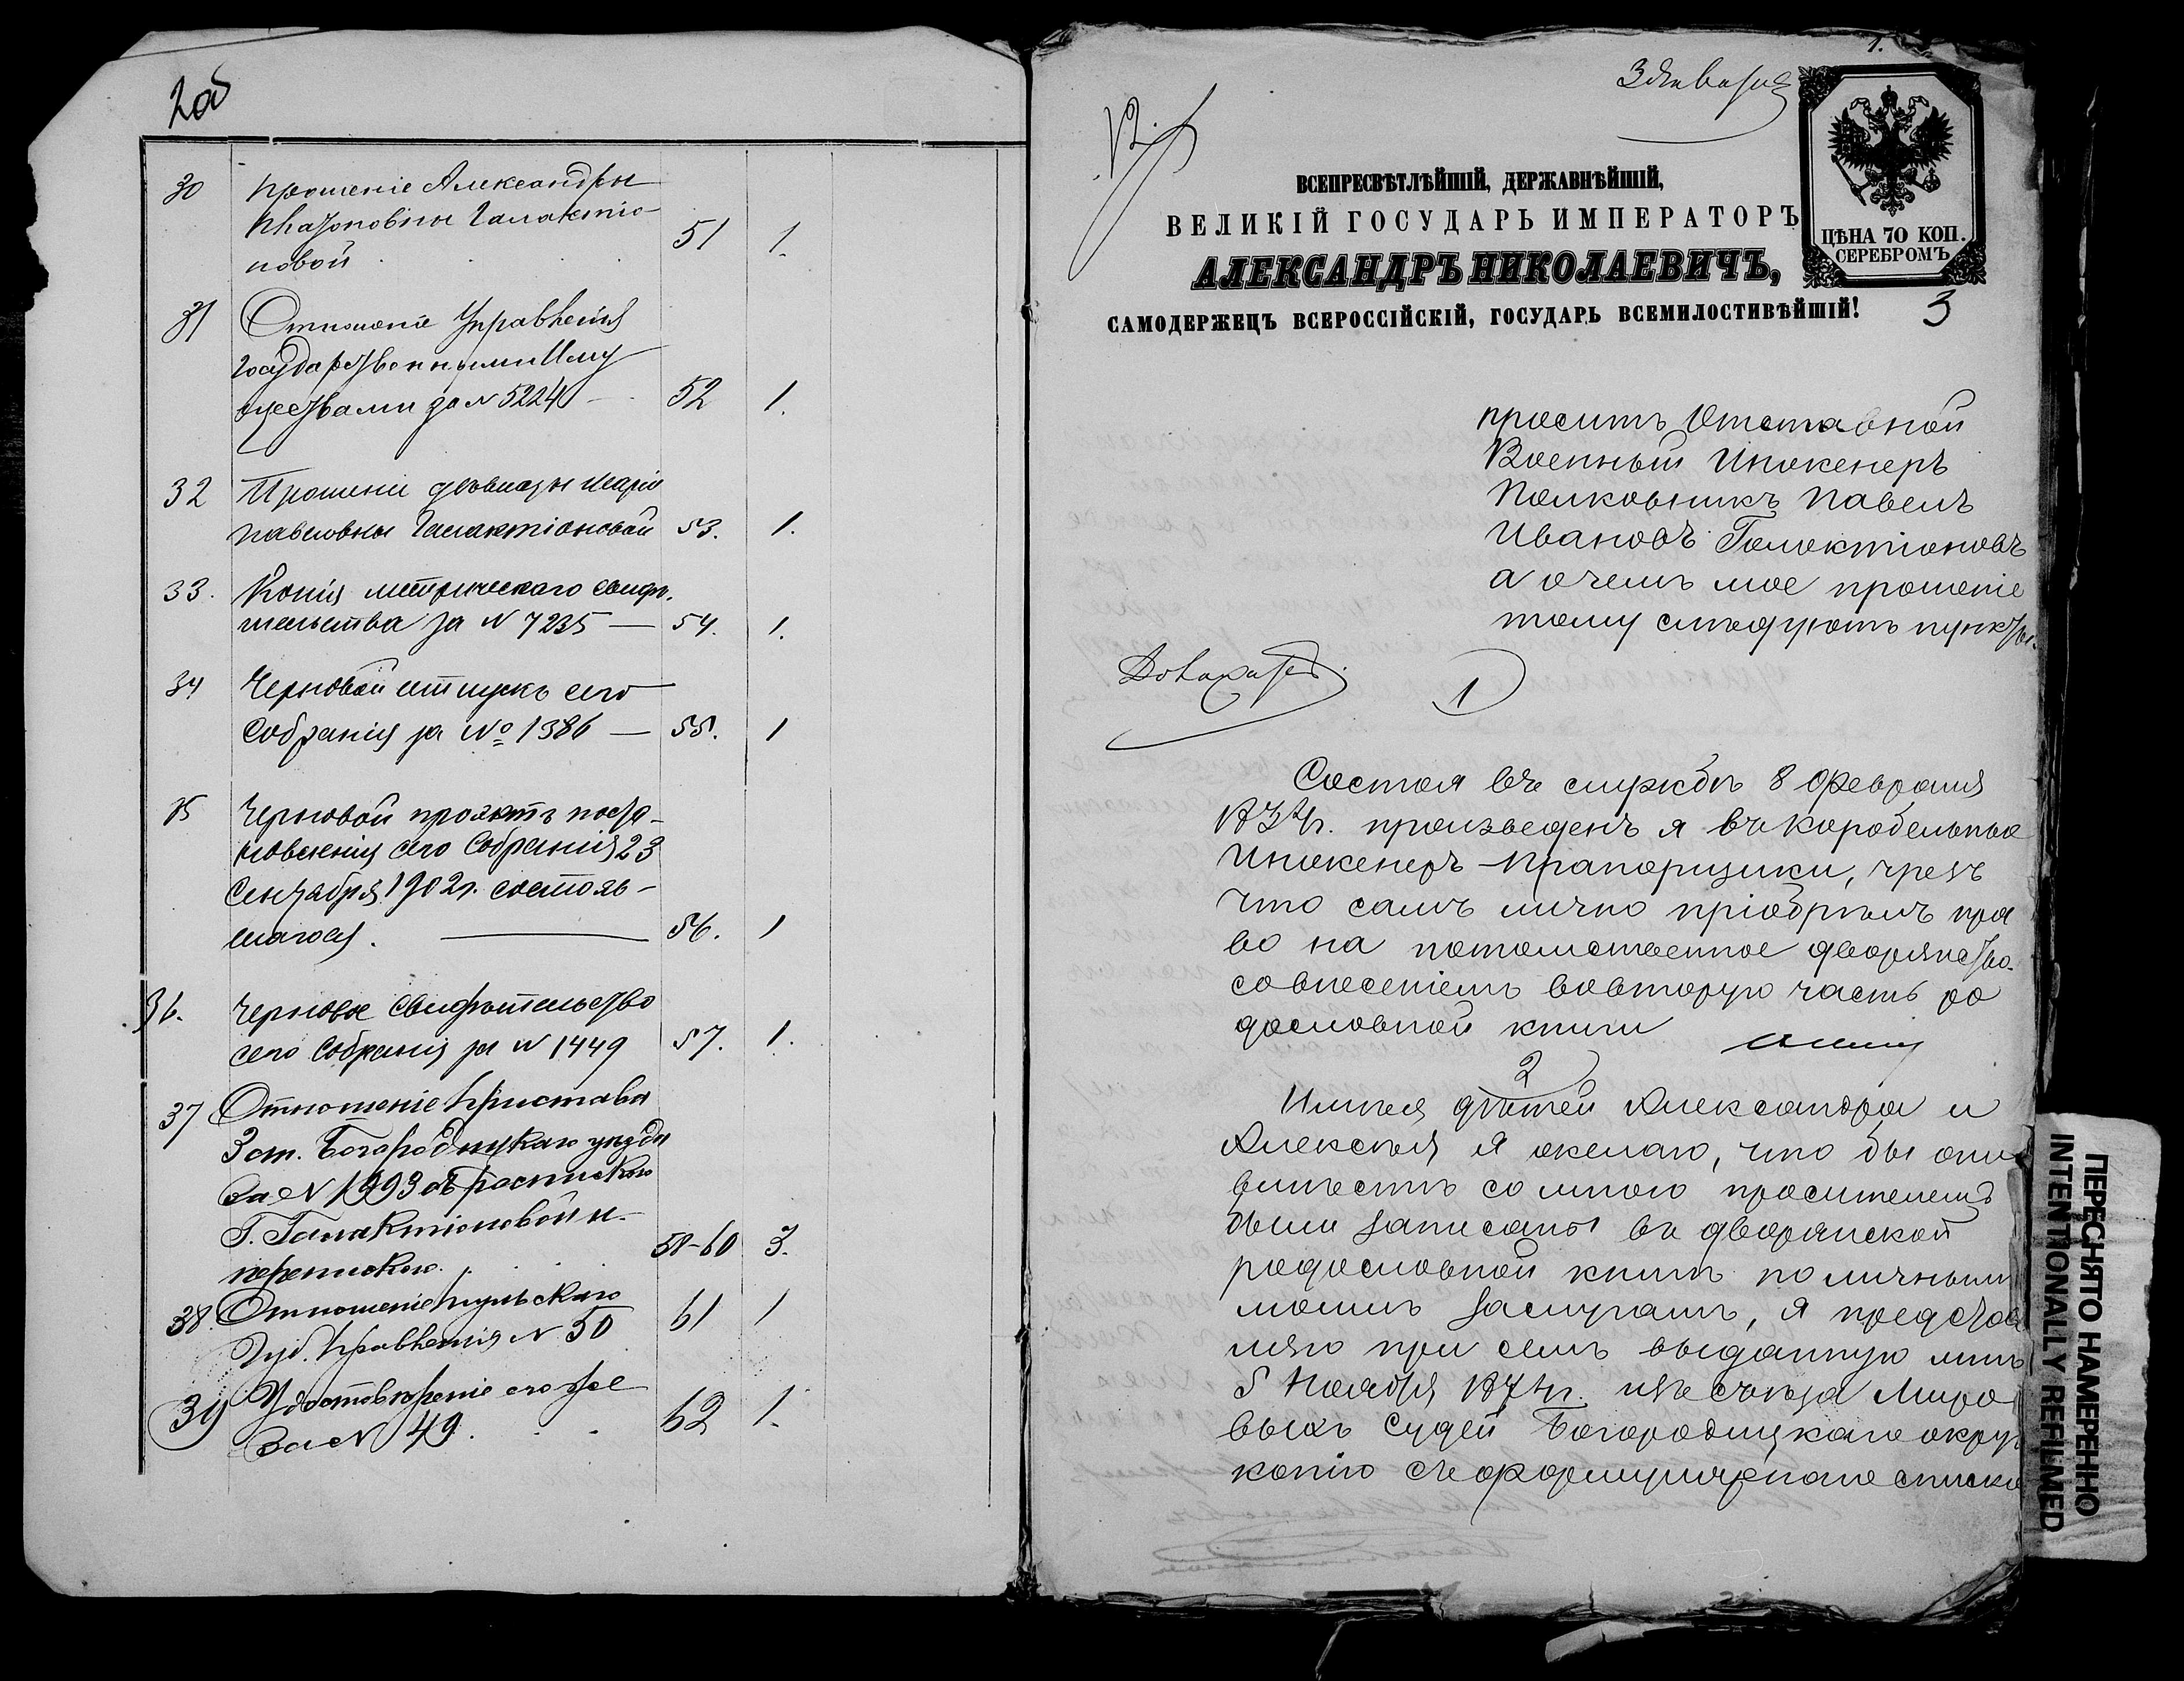 2об
30 Прошеніе Александры
Платоновны Галактіо-
новой 51 1.
31 Отношеніе Управленія
Государственными Иму
ществами за N 5224 - 52 1.
32 Прошеніе дѣвицы Маріи
Павловны Галактіоновой 53. 1.
33. Копія метрическаго свидѣ-
тельства за N 7235 — 54. 1.
34 Черновой отпускъ сего
Собранія за № 1386 — 55. 1
35 Черновой проэктъ поста-
новленія сего Собранія 23
Сентября 1902 г. состояв-
шагося. — 56. 1
36. Черновое свидѣтельство
сего Собранія за N 1449 57. 1.
37 Отношеніе Пристава
3 ст. Богородицкаго уѣзда
За N 1993 съ роспискою
Г. Галактіоновой и
перепискою. 58-60 3.
38. Отношеніе Тульскаго
Губ. Правленія N 50 61 1
39 Удостовѣреніе его же
За N 49. 62 1.
1.
3 Января
ВСЕПРЕСВѢТЛѢЙШІЙ, ДЕРЖАВНѢЙШІЙ,
ВЕЛИКІЙ ГОСУДАРЬ ИМПЕРАТОРЪ
АЛЕКСАНДРЪ НИКОЛАЕВИЧЪ,
САМОДЕРЖЕЦЪ ВСЕРОССІЙСКІЙ, ГОСУДАРЬ ВСЕМИЛОСТИВѢЙШІЙ!
ЦѢНА 70 КОП.
СЕРЕБРОМЪ
3
проситъ Отставной
Военный Инженеръ
Полковникъ Павелъ
Ивановъ Галактіоновъ
а о чемъ мое прошеніе
тому слѣдуютъ пункты.
1
Состоя въ службѣ 8 Февраля
183 г. произведенъ я въ Корабельные
Инженеръ-Прапорщики, чрезъ
что самъ лично пріобрѣлъ пра
во на потомственное дворянство
со внесеніемъ во вторую часть ро
дословной книги
2
Имѣя дѣтей Александра и
Алексѣя я желаю, что бы они
вмѣстѣ со мною просителемъ
были записаны въ дворянской
родословной книгѣ по личнымъ
моимъ заслугамъ, я представ
ляю при семъ выданную мнѣ
5 Ноября 187 г. изъ съѣзда Миро
выхъ Судей Богородицкаго округа
копію съ формулярнаго списка
ПЕРЕСНЯТО НАМЕРЕННО
INTENTIONALLY REFILMED